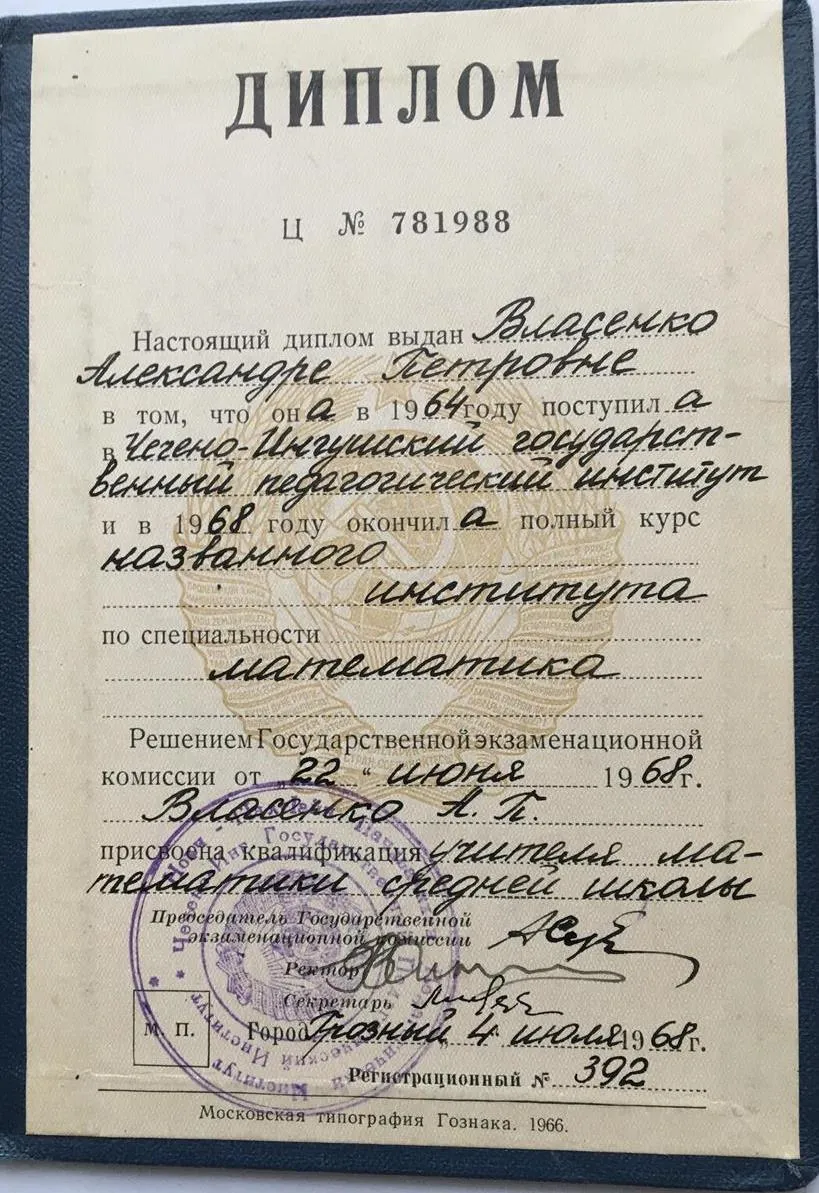 ДИПЛОМ
Ц № 781988
Настоящий диплом выдан Власенко
Александре Петровне
в том, что она в 1964 году поступила
в Чечено-Ингушский государст-
венный педагогический институт
и в 1968 году окончила полный курс
названного
института
по специальности
математика
Решением Государственной экзаменационной
комиссии от „22“ июня 1968 г.
Власенко А. П.
присвоена квалификация учителя ма-
тематики средней школы
Председатель Государственной
экзаменационной комиссии
Ректор
Секретарь
М. П.
Город Грозный 4 июля 1968 г.
Регистрационный № 392
Московская типография Гознака. 1966.